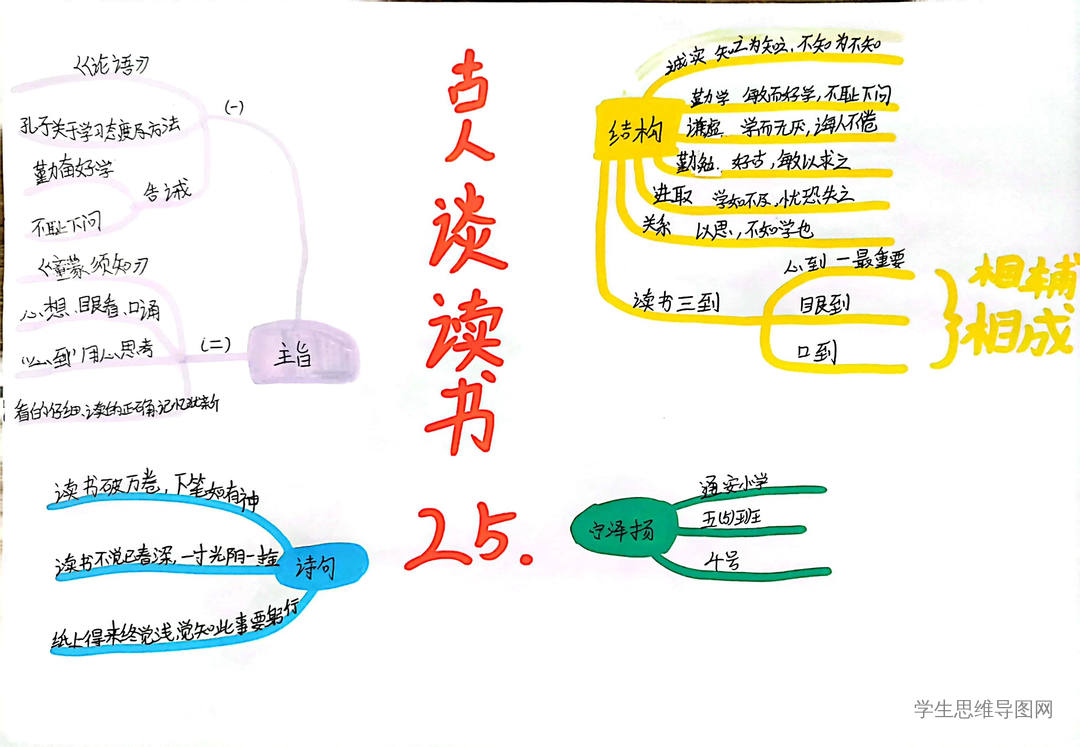 古人谈读书
25.
主旨
(一)
《论语》
孔子关于学习态度与方法
告诫
勤奋好学
不耻下问
(二)
《童蒙须知》
心想、目艮看、口诵
"心到"用心思考
看的仔细、读的正确、记忆犹新
结构
诚实 知之为知之,不知为不知
勤学 敏而好学,不耻下问
谦虚 学而无厌,诲人不倦
勤勉 好古,敏以求之
进取 学如不及,忧恐失之
关系 以思,不如学也
读书三到
心到 一最重要
目艮到
口到
相辅
相成
诗句
读书破万卷,下笔如有神
读书不觉已春深,一寸光阴一寸金
纸上得来终觉浅,觉知此事要躬行
宁泽扬
通安小学
五(5)班
4号
学生思维导图网